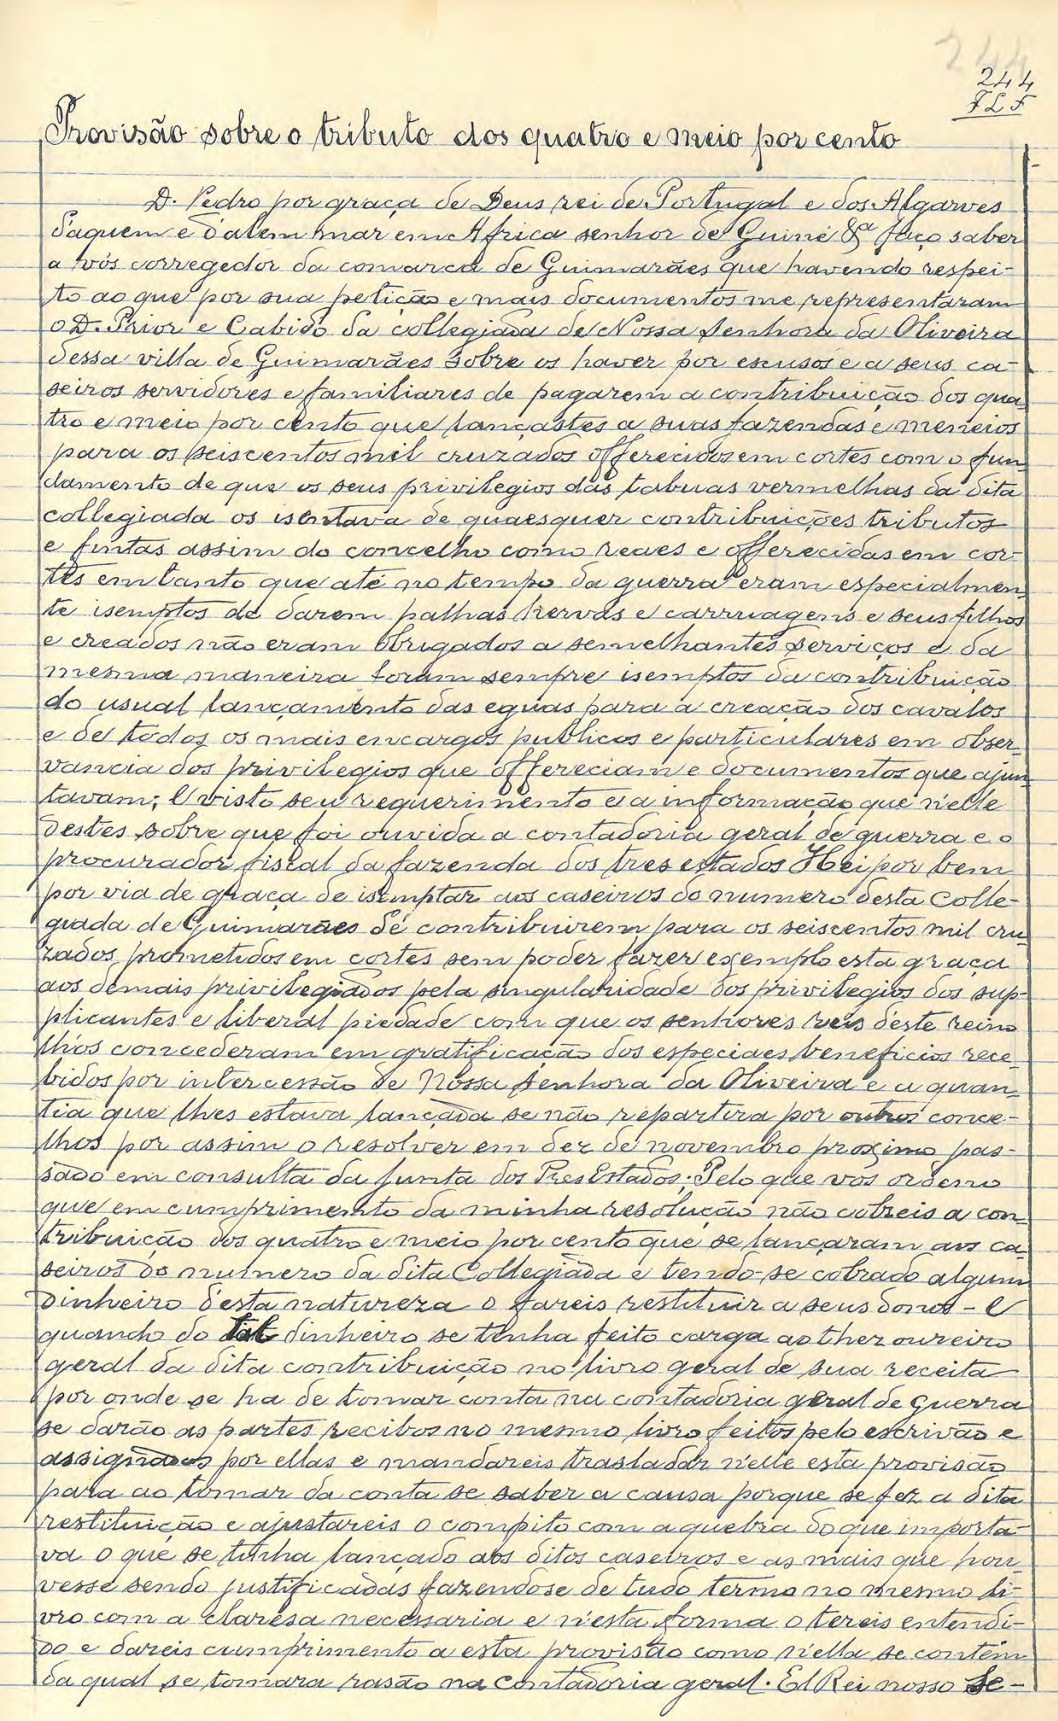 244
244
F L F
Provisão sobre o tributo dos quatro e meio por cento
D. Pedro por graça de Deus rei de Portugal e dos Algarves
d'aquem e d'alem mar em Africa senhor de Guiné &ª faço saber
a vós corregedor da comarca de Guimarães que havendo respei-
to ao que por sua petição e mais documentos me representaram
o D. Prior e Cabido da collegiada de Nossa Senhora da Oliveira
dessa villa de Guimarães sobre os haver por escusos e a seus ca-
seiros servidores e familiares de pagarem a contribuição dos qua-
tro e meio por cento que lançastes a suas fazendas e meneios
para os seiscentos mil cruzados offerecidos em cortes com o fun-
damento de que os seus privilegios das tabuas vermelhas da dita
collegiada os isentava de quaesquer contribuições tributos
e fintas assim do concelho como reaes e offerecidas em cor-
tes em tanto que até no tempo da guerra eram especialmen-
te isemptos de darem palhas hervas e carruagens e seus filhos
e creados não eram obrigados a semelhantes serviços e da
mesma maneira foram sempre isemptos da contribuição
do usual lançamento das eguas para a creação dos cavalos
e de todos os mais encargos publicos e particulares em obser-
vancia dos privilegios que offereciam e documentos que ajun-
tavam; E visto seu requerimento e a informação que n'elle
destes sobre que foi ouvida a contadoria geral de guerra e o
procurador fiscal da fazenda dos tres estados Hei por bem
por via de graça de isemptar aos caseiros do numero desta Colle-
giada de Guimarães de contribuirem para os seiscentos mil cru-
zados prometidos em cortes sem poder fazer exemplo esta graça
aos demais privilegiados pela singularidade dos privilegios dos sup-
plicantes e liberal piedade com que os senhores reis deste reino
lh'os concederam em gratificação dos especiaes beneficios rece-
bidos por intercessão de Nossa Senhora da Oliveira e a quan-
tia que lhes estava lançada se não repartira por outros conce-
lhos por assim o resolver em dez de novembro proximo pas-
sado em consulta da Junta dos Tres Estados; Pelo que vos ordeno
que em cumprimento da minha resolução não cobreis a con-
tribuição dos quatro e meio por cento que se lançaram aos ca-
seiros do numero da dita Collegiada e tendo-se cobrado algum
dinheiro d'esta natureza o fareis restituir a seus donos - E
quando do tal dinheiro se tenha feito carga ao thezoureiro
geral da dita contribuição no livro geral de sua receita
por onde se ha de tomar conta na contadoria geral de guerra
se darão as partes recibos no mesmo livro feitos pelo escrivão e
assignados por ellas e mandareis trasladar n'elle esta provisão
para ao tomar da conta se saber a causa porque se fez a dita
restituição e ajustareis o computo com a quebra do que importa-
va o que se tinha lançado aos ditos caseiros e as mais que hou-
vesse sendo justificadas fazendose de tudo termo no mesmo li-
vro com a claresa necessaria e n'esta forma o tereis entendi-
do e dareis cumprimento a esta provisão como n'ella se contém
da qual se tomara rasão na contadoria geral. El Rei nosso Se-